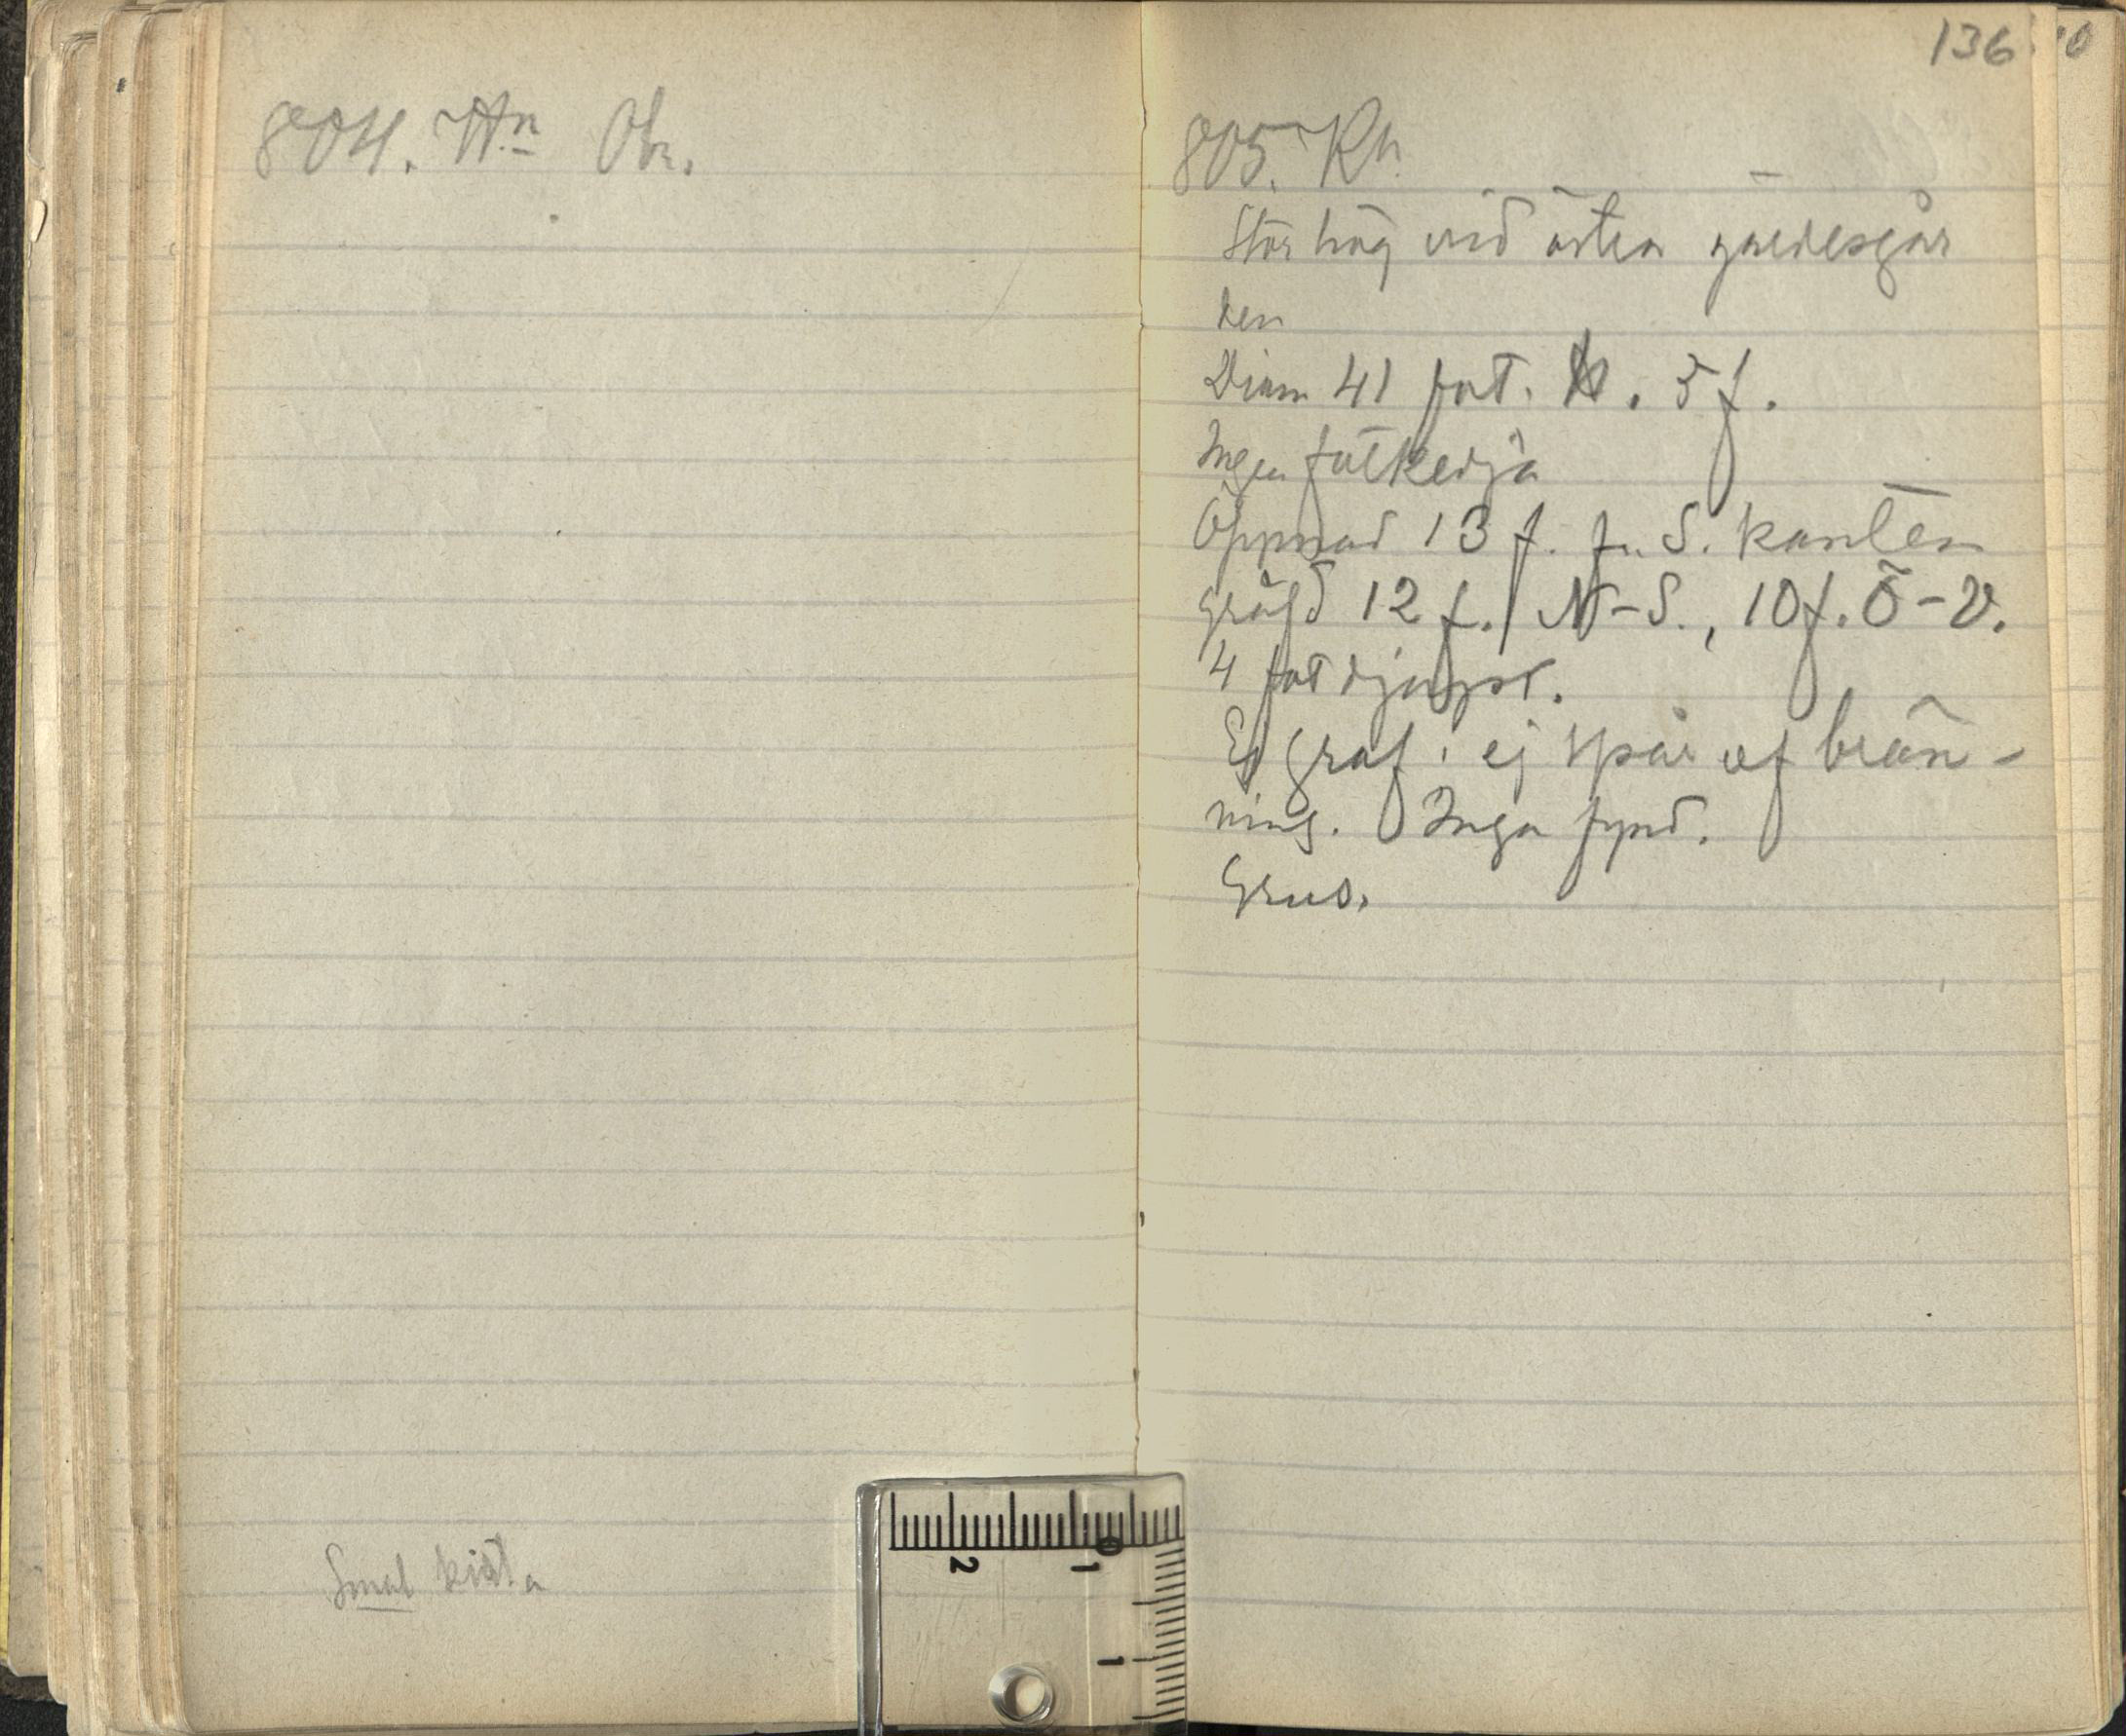 804. Hn Obr.
Smal kista
136
805. Rh.
Stor hög vid östra gärdesgår
den
Diam 41 fot. H. 5 f.
Ingen fotkedja
Öppnad 13 f. fr. S. kanten
gräfd 12 f. N-S., 10 f. Ö-V.
4 fot djupt.
Ej graf, ej spår af brän-
ning. Inga fynd.
Grus.
2
1
0
1